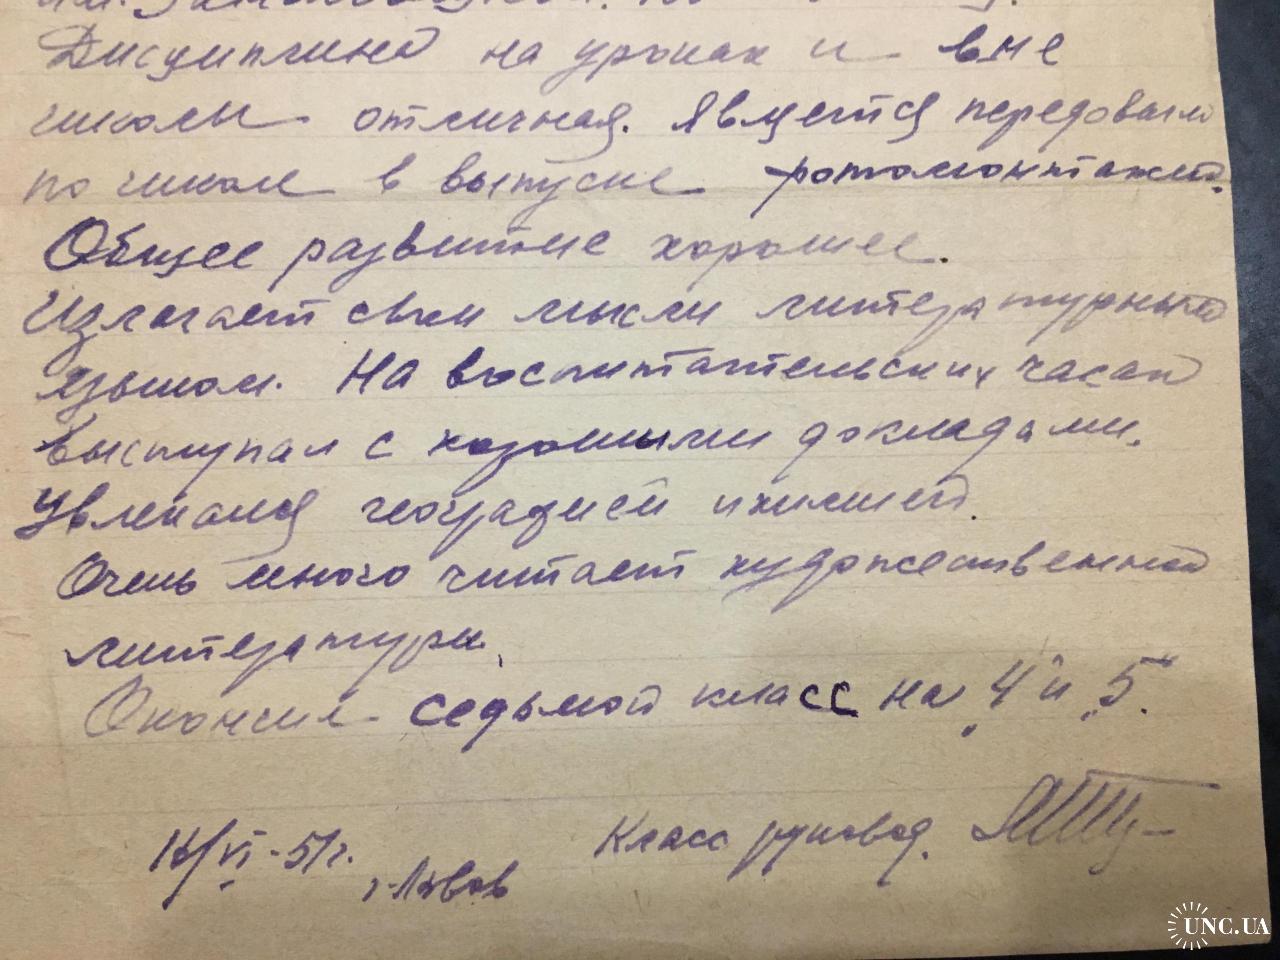 Дисциплина на уроках и вне
школы отличная. Является передовым
по школе в выпуске фотомонтажей.
Общее развитие хорошее.
Излагает свои мысли литературным
языком. На воспитательских часах
выступал с хорошими докладами.
Увлекался географией и химией.
Очень много читает художественной
литературы.
Окончил седьмой класс на „4" и „5".
/VI-51г.
г. Львов
Класс руковод.
UNC.UA